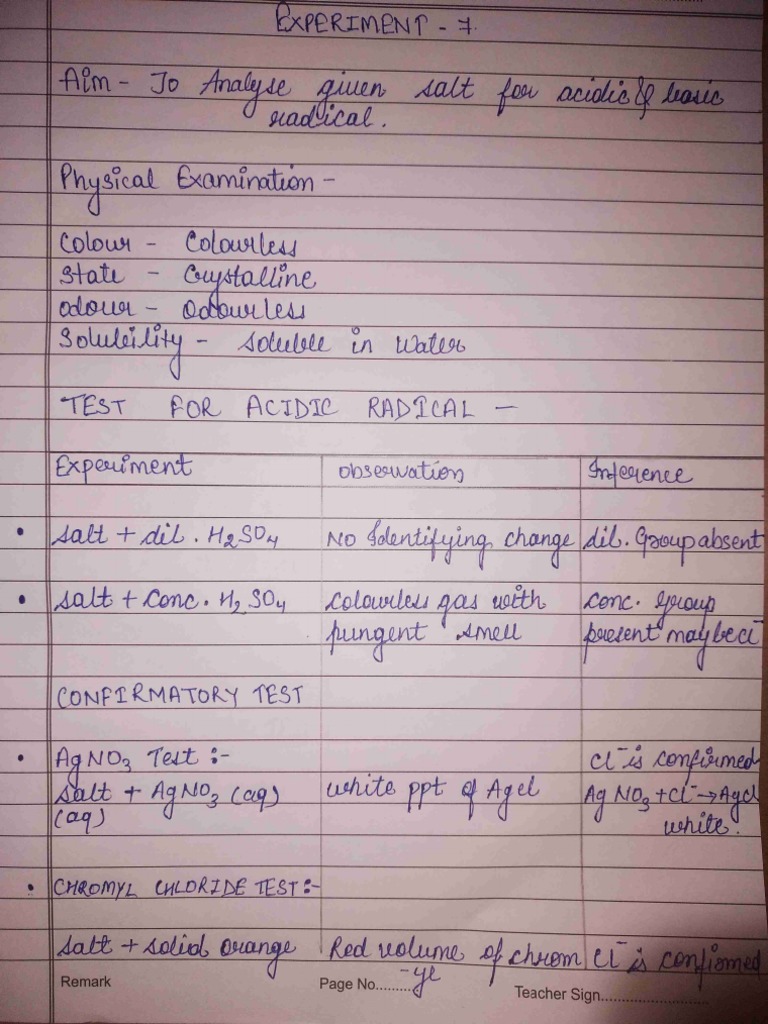 EXPERIMENT - 7.
Aim - To Analyse given salt for acidic & basic
radical.
Physical Examination -
Colour - Colourless
State - Crystalline
Odour - Odourless
Solubility - soluble in water
TEST FOR ACIDIC RADICAL -
Experiment observation Inference
• salt + dil. H2SO4 No Identifying change dil. Group absent
• salt + conc. H2SO4 colourless gas with conc. group
pungent smell present maybe cl-
CONFIRMATORY TEST
• AgNO3 Test :- Cl- is confirmed
salt + AgNO3 (aq) white ppt of Agcl AgNO3 + Cl- → Agcl
(aq) white.
• CHROMYL CHLORIDE TEST :-
salt + solid orange Red volume of chrom Cl- is confirmed
-yl
Remark Page No......... Teacher Sign.......................